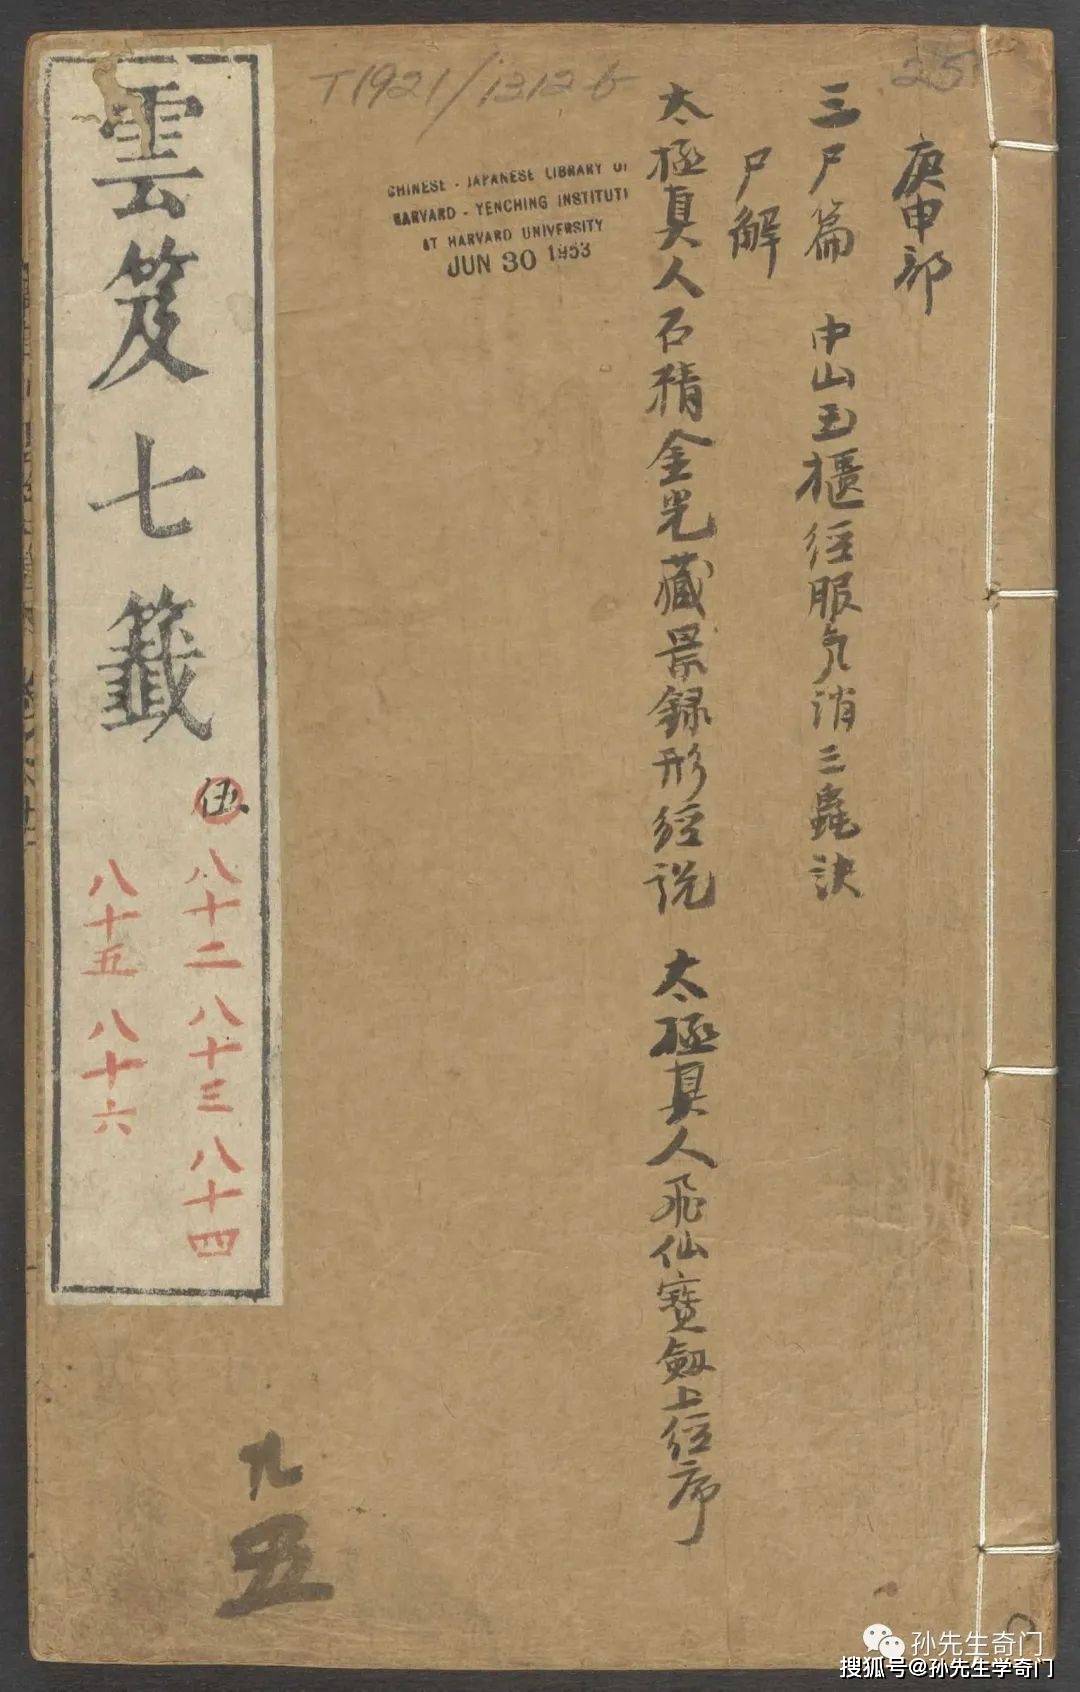 25
庚申部
三尸篇 中山玉櫃經服气消三蟲訣
尸解
太極真人石精金光藏景録形經説 太極真人飛仙寶劔上經序
T1921/1312b
CHINESE - JAPANESE LIBRARY OF
HARVARD - YENCHING INSTITUTE
AT HARVARD UNIVERSITY
JUN 30 1953
雲笈七籤
伍
八十二 八十三 八十四
八十五 八十六
九
五
孙先生奇门
搜狐号@孙先生学奇门